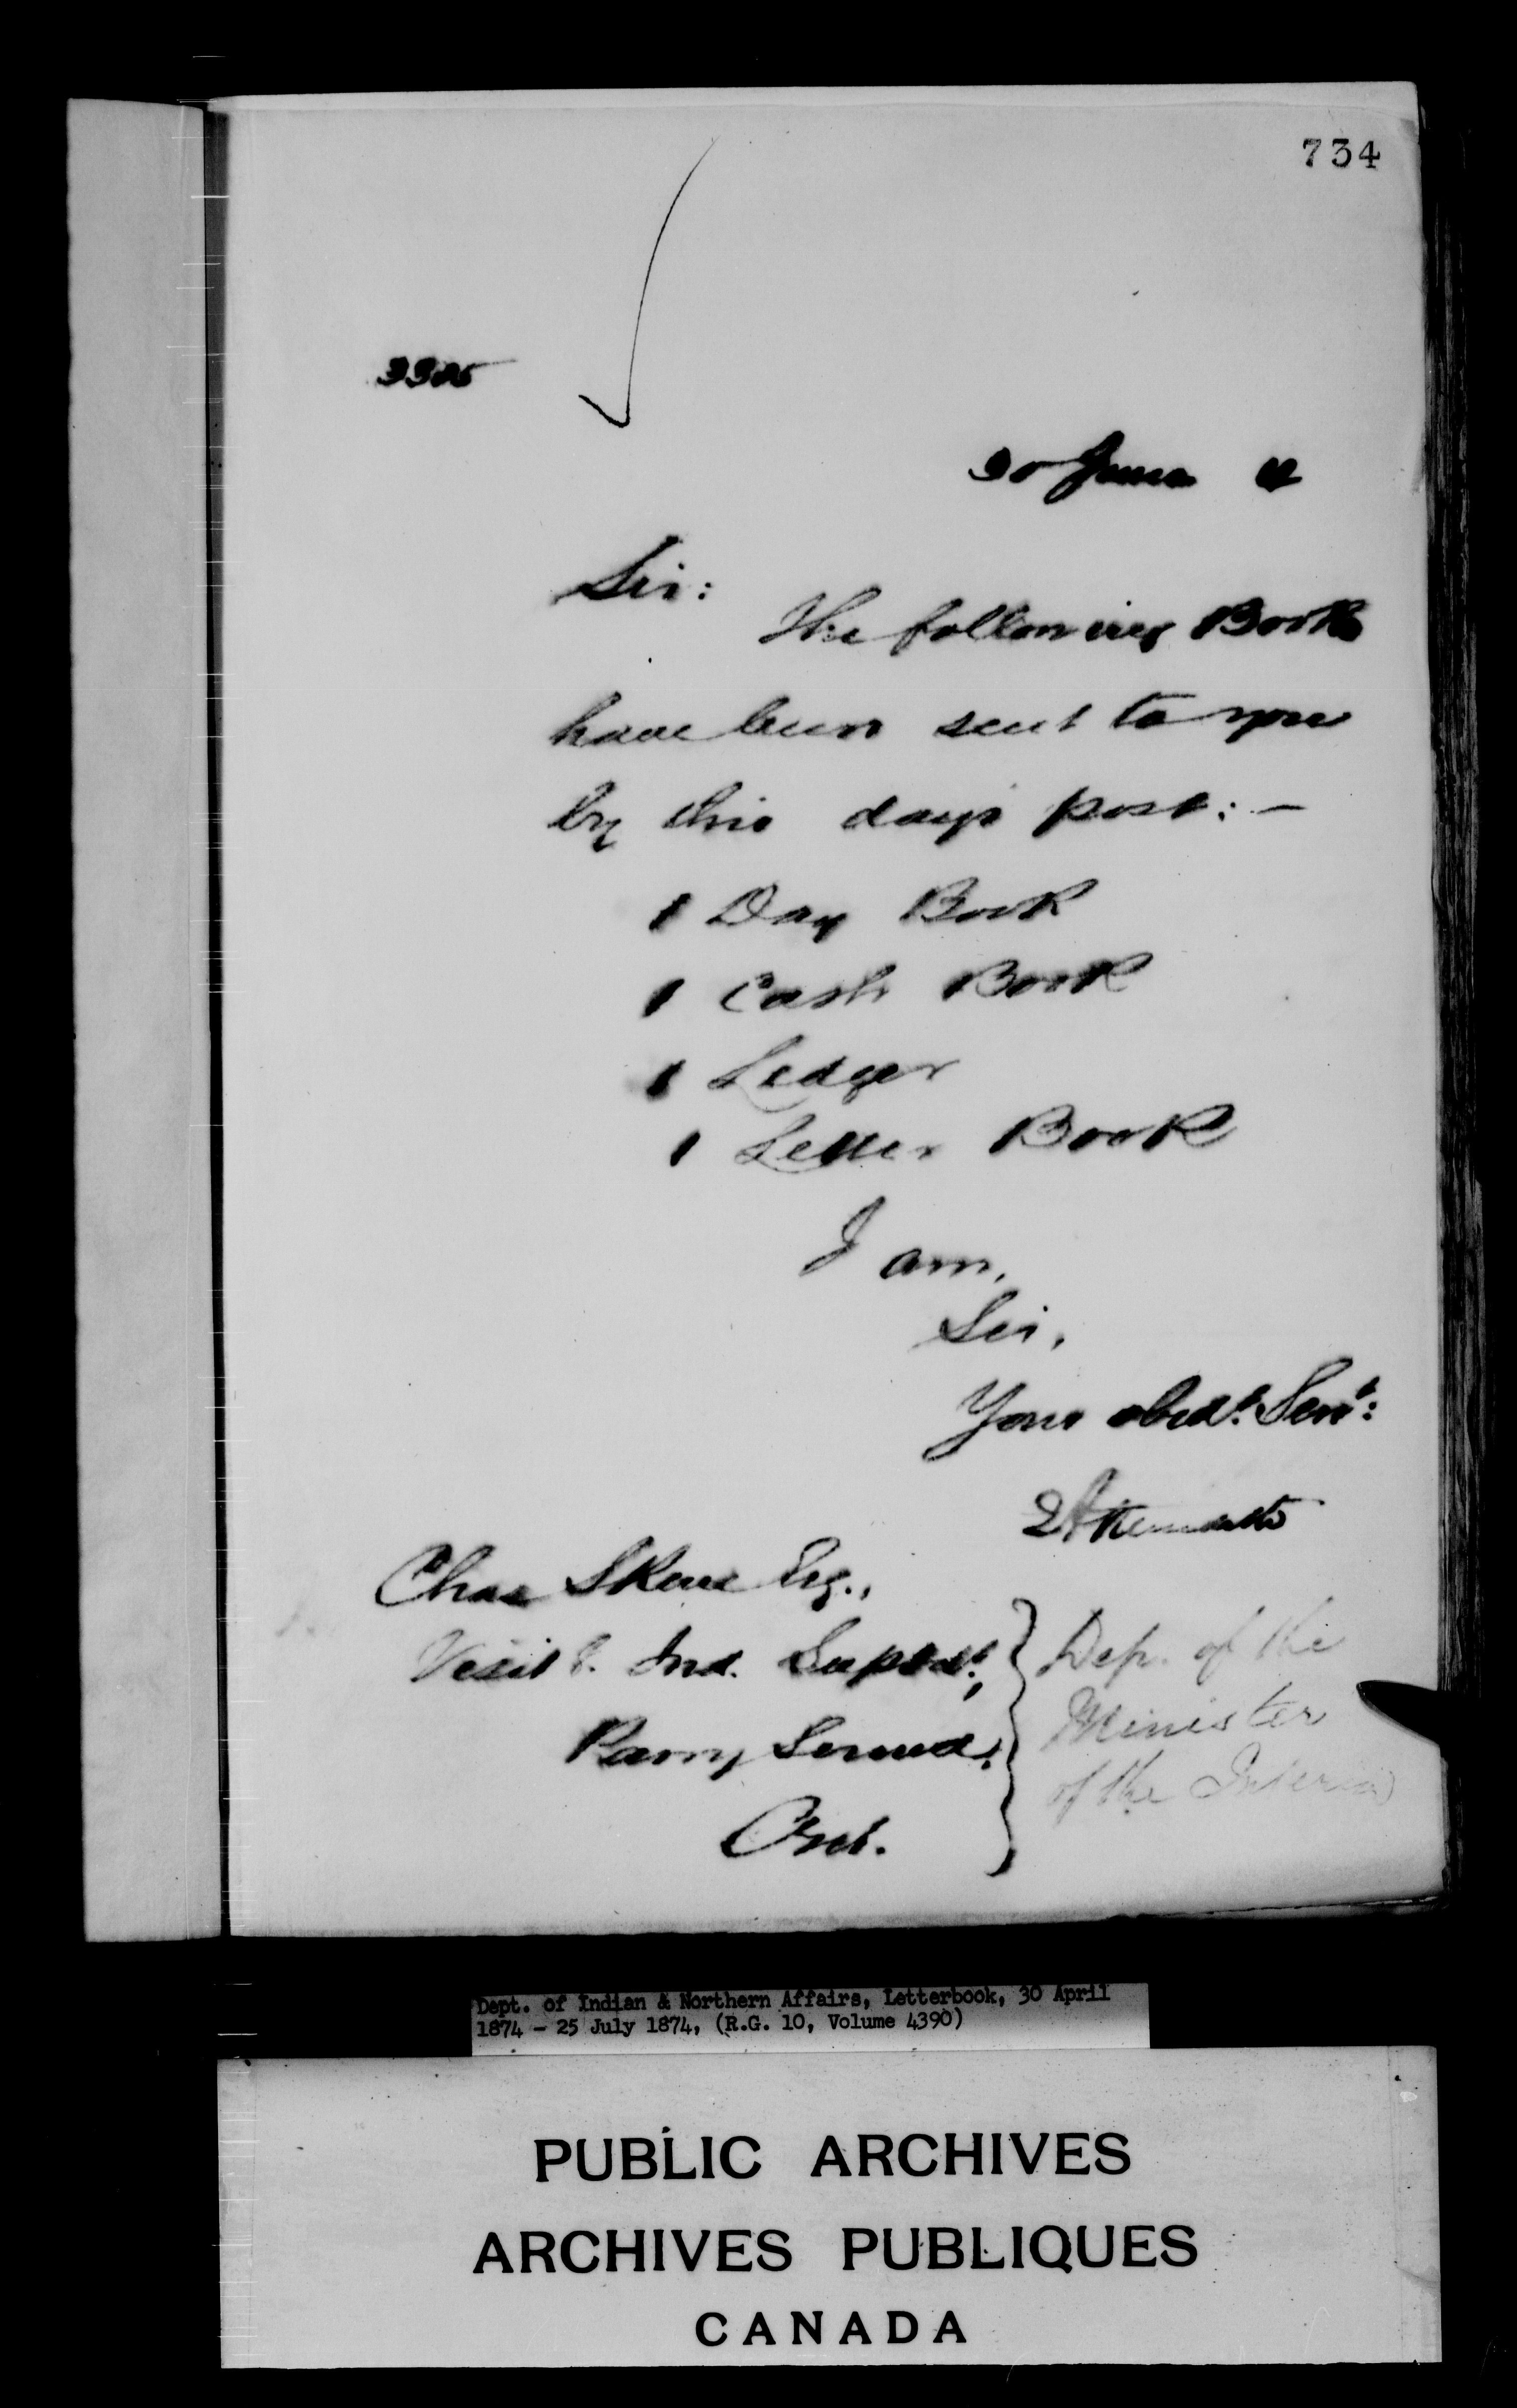 734
30 June
Sir:
The following Books
have been sent to you
by this days post: —
1 Day Book
1 Cash Book
1 Ledger
1 Letter Book
I am,
Sir,
Your obedt. Servt:
Chas Skene Esq.,
Visitg. Ind. Supedt.,
Parry Sound,
Ont.
Dep. of the
Minister
of the Interior
Dept. of Indian & Northern Affairs, Letterbook, 30 April
1874 - 25 July 1874, (R.G. 10, Volume 4390)
PUBLIC ARCHIVES
ARCHIVES PUBLIQUES
CANADA